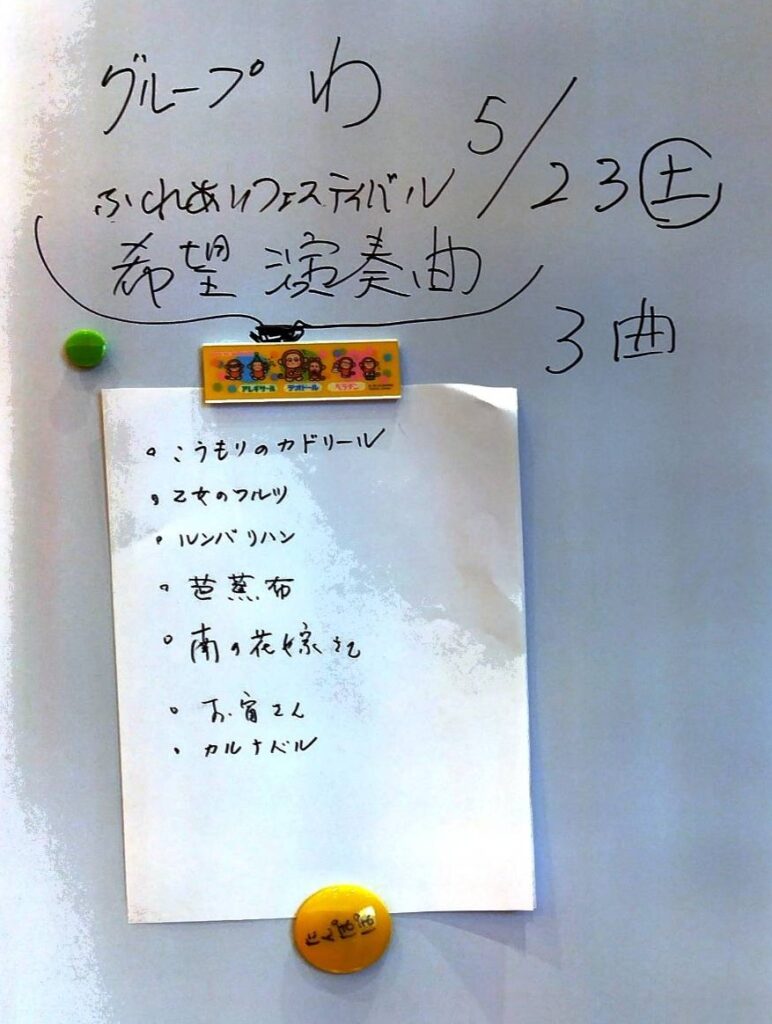 グループ わ
ふれあいフェスティバル 5/23 土
希望 演奏曲
3曲
アレギサール テオドール ペラチン
・こうもりのカドリール
・乙女のワルツ
・ルンバリハン
・芭蕉布
・南の花嫁さん
・お富さん
・カルナバル